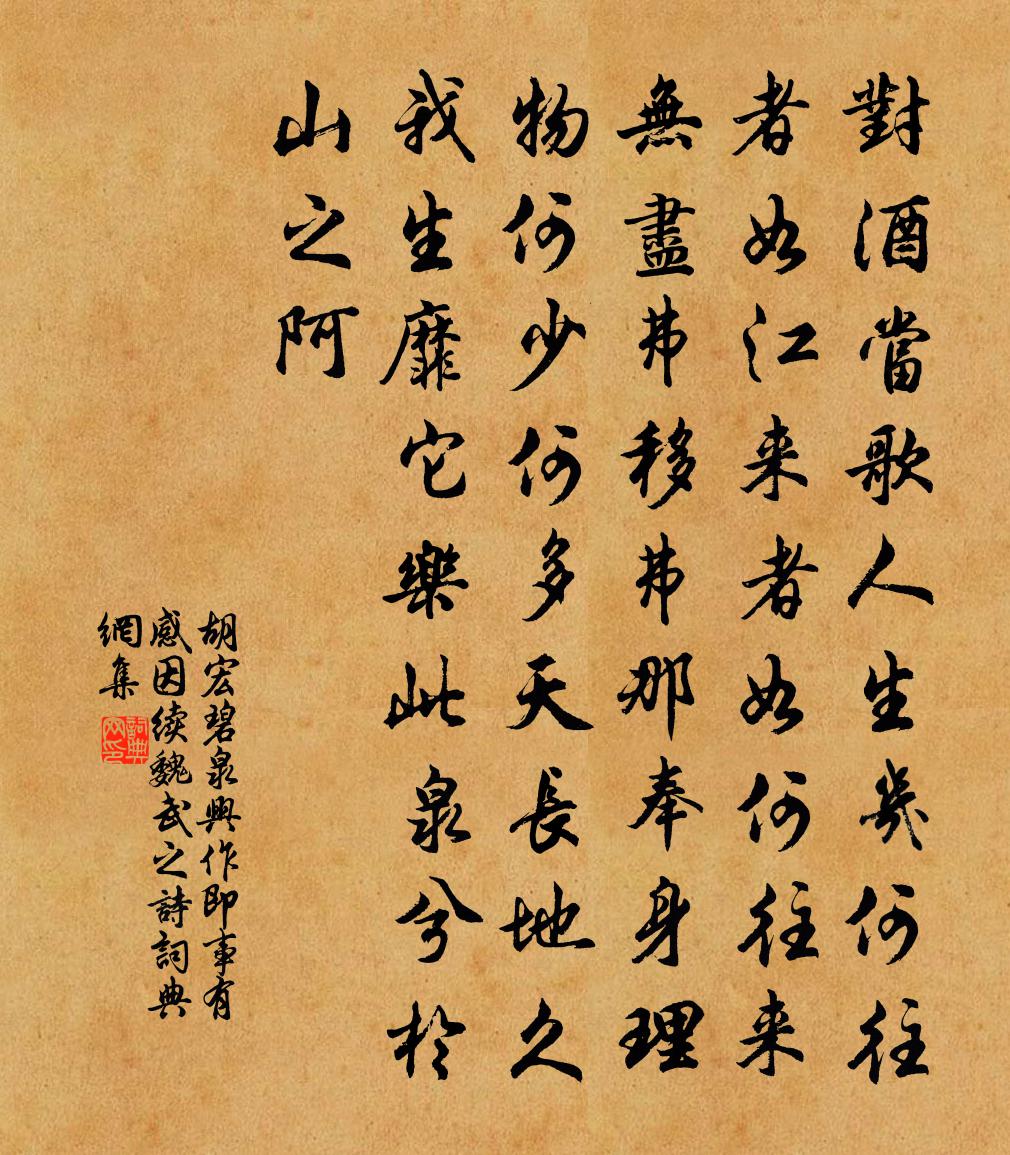 對酒當歌人生幾何往
者如江来者如何往来
無盡弗移弗那奉身理
物何少何多天長地久
我生靡它樂此泉兮於
山之阿
胡宏碧泉興作即事有
感因續魏武之詩詞典
網集
詞典網印